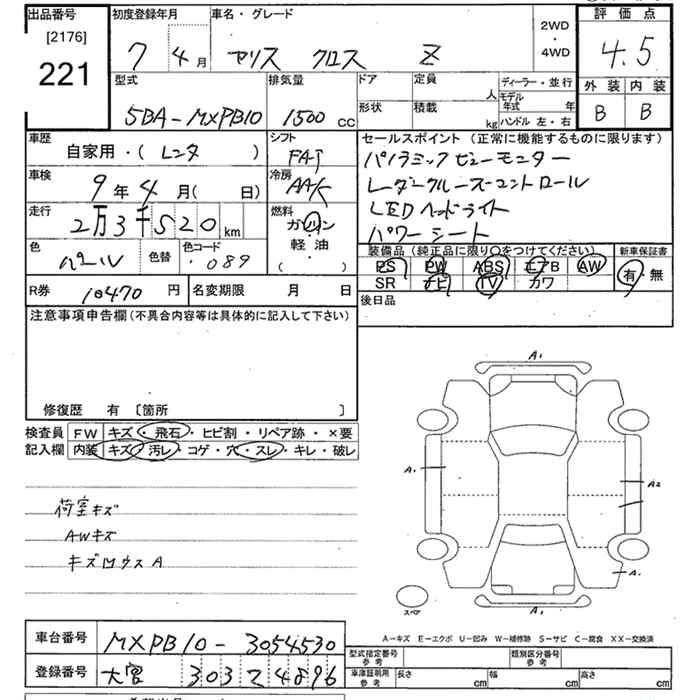 出品番号 初度登録年月 車名・グレード 2WD・4WD 評価点
[2176]
221 7 4月 ヤリス クロス Z 4.5
型式 排気量 ドア 定員 人 ディーラー・並行 外装 内装
5BA-MXPB10 1500cc 形状 積載 kg モデル年式 年 B B
ハンドル 左・右
車歴 自家用・(レンタ) シフト FAT セールスポイント(正常に機能するものに限ります)
パノラミックビューモニター
車検 9年4月(日) 冷房 AAC レーダークルーズコントロール
LEDヘッドライト
走行 2万3千520km 燃料 ガソリン・軽油・( ) パワーシート
色 パール 色替 色コード 089 装備品(純正品に限り○をつけてください) 新車保証書
PS PW ABS エアB AW 有・無
SR ナビ TV カワ
R券 10470円 名変期限 月 日 後日品
注意事項申告欄(不具合内容等は具体的に記入して下さい)
修復歴 有 〔箇所 〕
検査員 FW キズ・飛石・ヒビ割・リペア跡・×要
記入欄 内装 キズ・汚レ・コゲ・穴・スレ・キレ・破レ
荷室キズ
AWキズ
キズロウスA
A1
A1 A2
A1
A1
スペア
A-キズ E-エクボ U-凹み W-補修跡 S-サビ C-腐食 XX-交換済
車台番号 MXPB10-3054530 型式指定番号 参考 類別区分番号 参考
登録番号 大宮 303 て 4896 車庫証明用 参考 長さ cm 幅 cm 高さ cm